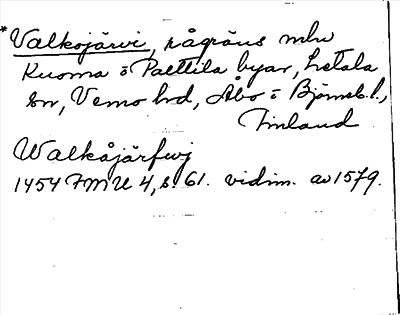 *Valkojärvi, rågräns mlu
Kuoma o Palttila byar, Letala
sn, Vemo hd, Åbo o Björneb. l.,
Finland
Walkåjärfwj
1454 FMU 4, s. 61. vidim. av 1579.